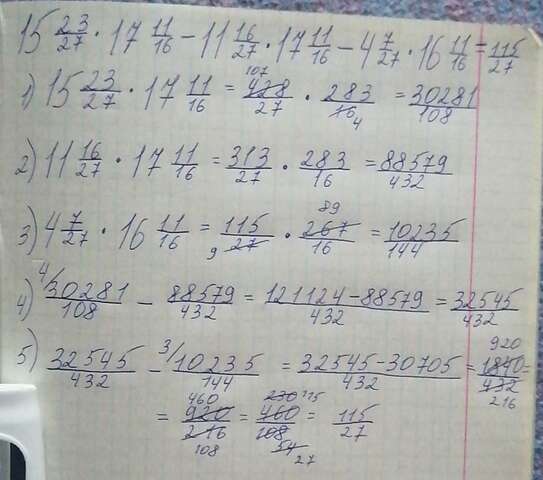 15 23/27 · 17 11/16 − 11 16/27 · 17 11/16 − 4 7/27 · 16 11/16 = 115/27
1) 15 23/27 · 17 11/16 = 428/27 107 · 283/16 4 = 30281/108
2) 11 16/27 · 17 11/16 = 313/27 · 283/16 = 88579/432
3) 4 7/27 · 16 11/16 = 115/27 9 · 267/16 89 = 10235/144
4) 4/ 30281/108 − 88579/432 = 121124−88579/432 = 32545/432
5) 32545/432 − 3/ 10235/144 = 32545−30705/432 = 1840/432 920 216 =
= 920/216 460 108 = 460/108 230 115 54 27 = 115/27